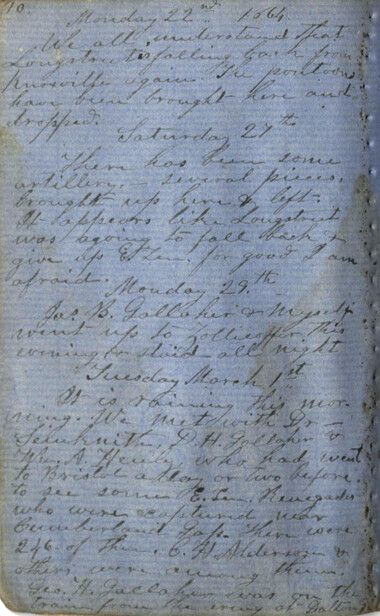 10
Monday 22nd 1864
We all understand that
Longstreet is falling back from
Knoxville again. The pontoons
have been brought here and
dropped.
Saturday 27th
There has been some
artillery,– several pieces,
brought up here & left.
It appears like Longstreet
was agoing to fall back &
give up E. Ten. for good I am
afraid.
Monday 29th
Jas. B. Gallaher & Myself
went up to Zollicoffer this
evening & staid all night
Tuesday March 1st
It is raining this mor-
ning. We met with Dr –
D. H. Gallaher &
Wm. A. who had went
to Bristol a day or two before.
to see some E. Ten. Renegades
who were captured near
Cumberland Gap. There were
246 of them. C. H. Alderson &
others were among them.
Geo. W. Gallaher was on the
train from the army at